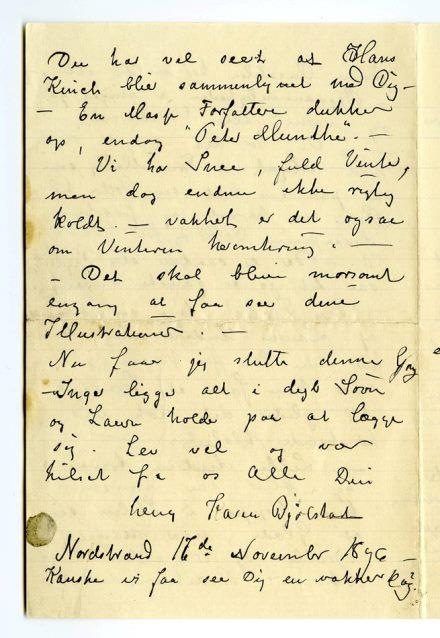 Du har vel seet at Hans
Kinck blir sammenlignet med Dig –
– En Masse Forfattere dukker
op, endog "Peter Munthe". –
Vi har Snee, fuld Vinter,
men dog endnu ikke rigtig
koldt. – vakkert er det ogsaa
om Vinteren heromkring. –
– Det skal blive morsomt
engang at faa see dine
Illustrationer. –
Nu faar jeg slutte denne Gang
– Inga ligger alt i dyb Søvn
og Laura holder paa at lægge
sig. Lev vel og vær
hilset fra os Alle Din
heng Karen Bjølstad
Nordstrand 17de November 1896 –
Kanske vi faar see Dig en vakker Dag?